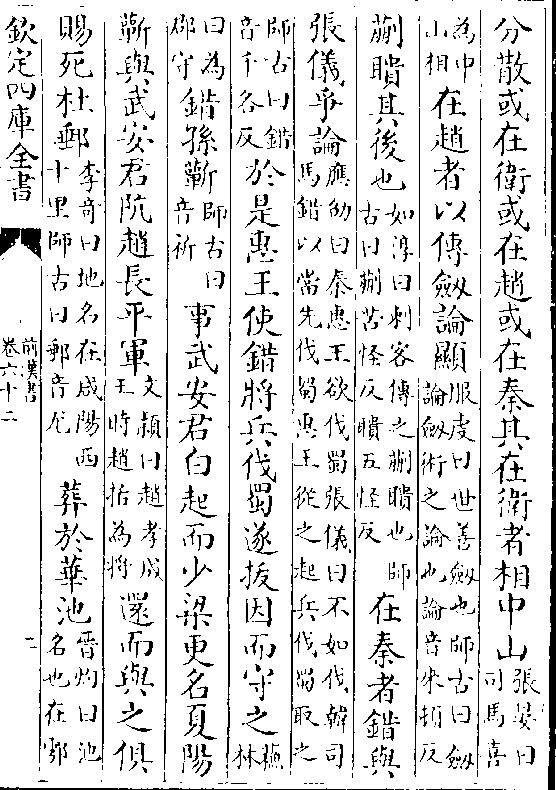 分散或在衛或在趙或在秦其在衛者相中山張晏曰司馬喜
為中山相在趙者以傳劒論顯服虔曰世善劒也師古曰劒論劒術之論也論音來頓反
蒯聵其後也如淳曰刺客傳之蒯聵也師古曰蒯苦怪反聵五怪反在秦者錯與
張儀爭論應劭曰秦惠王欲伐蜀張儀曰不如伐韓司馬錯以當先伐蜀惠王從之起兵伐蜀取之
師古曰錯音千各反於是惠王使錯將兵伐蜀遂拔因而守之蘇林
曰為郡守錯孫蘄師古曰音祈事武安君白起而少梁更名夏陽
蘄與武安君阬趙長平軍文穎曰趙孝成王時趙括為將還而與之俱
賜死杜郵李竒曰地名在咸陽西十里師古曰郵音尤葬於華池晉灼曰池名也在鄠
欽定四庫全書
前漢書
卷六十二
二